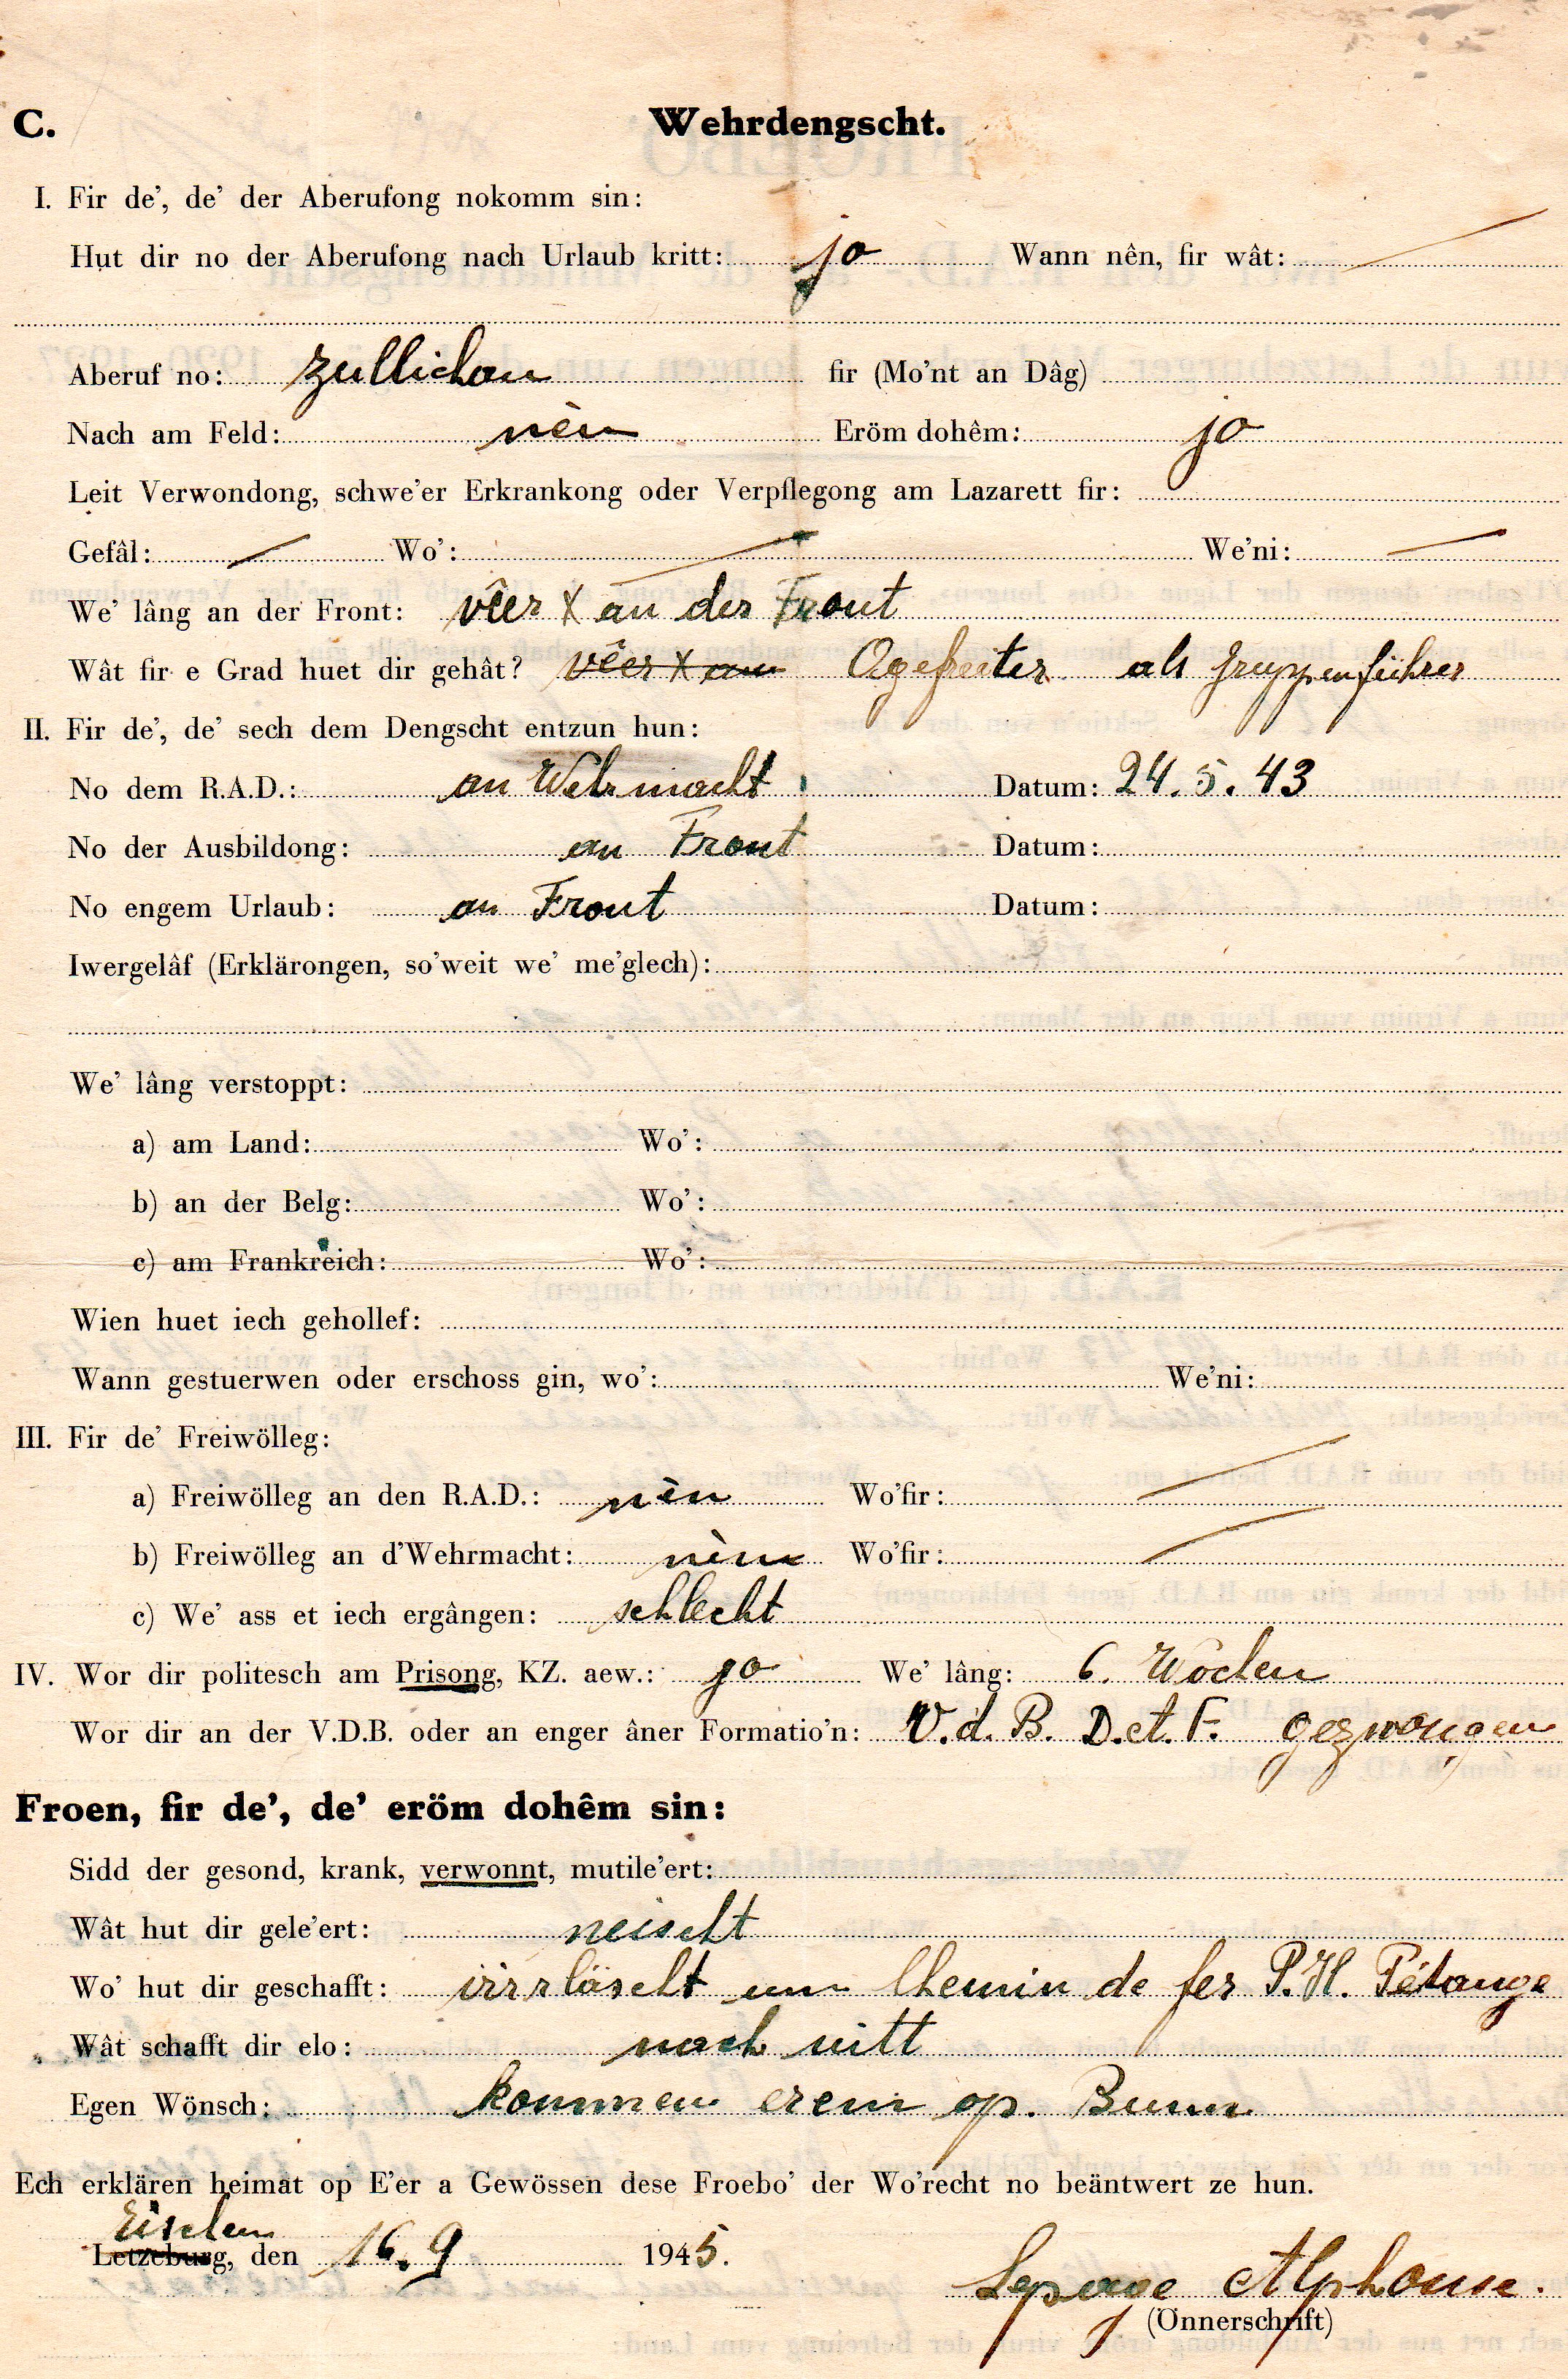 C. Wehrdengscht.
I. Fir de’, de’ der Aberufong nokomm sin:
Hut dir no der Aberufong nach Urlaub kritt: jo Wann nên, fir wât:
Aberuf no: Züllichau fir (Mo’nt an Dâg)
Nach am Feld: nèn Eröm dohêm: jo
Leit Verwondong, schwe’er Erkrankong oder Verpflegong am Lazarett fir:
Gefâl: Wo’: We’ni:
We’ lâng an der Front: vêer X an der Front
Wât fir e Grad huet dir gehât? vêer X an Ogefreiter als Gruppenführer
II. Fir de’, de’ sech dem Dengscht entzun hun:
No dem R.A.D.: an Wehrmacht Datum: 24.5.43
No der Ausbildong: an Front Datum:
No engem Urlaub: an Front Datum:
Iwergelâf (Erklärongen, so’weit we’ me’glech):
We’ lâng verstoppt:
a) am Land: Wo’:
b) an der Belg: Wo’:
c) am Frankreich: Wo’:
Wien huet iech gehollef:
Wann gestuerwen oder erschoss gin, wo’: We’ni:
III. Fir de’ Freiwölleg:
a) Freiwölleg an den R.A.D.: nèn Wo’fir:
b) Freiwölleg an d’Wehrmacht: nèn Wo’fir:
c) We’ ass et iech ergângen: schlecht
IV. Wor dir politesch am Prisong, KZ. aew.: jo We’ lâng: 6. Wochen
Wor dir an der V.D.B. oder an enger âner Formatio’n: V.d.B. D.A.F. gezwongen
Froen, fir de’, de’ eröm dohêm sin:
Sidd der gesond, krank, verwonnt, mutile’ert:
Wât hut dir gele’ert: neischt
Wo’ hut dir geschafft: Chemin de fer P.H. Pétange
Wât schafft dir elo: nach nitt
Egen Wönsch: kommen erem op. Bunn
Ech erklären heimat op E’er a Gewössen dese Froebo’ der Wo’recht no beäntwert ze hun.
Eischen
Letzeburg, den 16.9 1945.
Lepage Alphonse.
(Önnerschrift)